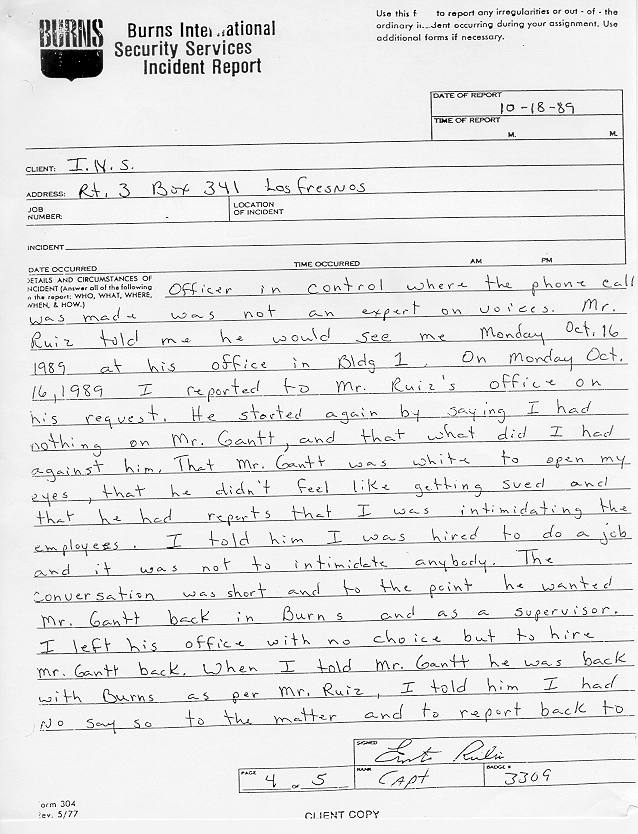 BURNS
Burns International
Security Services
Incident Report
Use this f to report any irregularities or out - of - the
ordinary in dent occurring during your assignment. Use
additional forms if necessary.
DATE OF REPORT
10-18-89
TIME OF REPORT
M. M.
CLIENT: I.N.S.
ADDRESS: Rt. 3 Box 341 Los Fresnos
JOB
NUMBER:
LOCATION
OF INCIDENT
INCIDENT
DATE OCCURRED TIME OCCURRED AM PM
DETAILS AND CIRCUMSTANCES OF
INCIDENT (Answer all of the following
in the report: WHO, WHAT, WHERE,
WHEN, & HOW.)
Officer in control where the phone call
was made was not an expert on voices. Mr.
Ruiz told me he would see me Monday Oct. 16
1989 at his office in Bldg 1. On Monday Oct.
16, 1989 I reported to Mr. Ruiz's office on
his request. He started again by saying I had
nothing on Mr. Gantt, and that what did I had
against him. That Mr. Gantt was white to open my
eyes, that he didn't feel like getting sued and
that he had reports that I was intimidating the
employees. I told him I was hired to do a job
and it was not to intimidate anybody. The
conversation was short and to the point he wanted
Mr. Gantt back in Burns and as a supervisor.
I left his office with no choice but to hire
Mr. Gantt back. When I told Mr. Gantt he was back
with Burns as per Mr. Ruiz, I told him I had
No say so to the matter and to report back to
SIGNED
PAGE 4 of 5
RANK
CAPT
BADGE #
3309
orm 304
Rev. 5/77
CLIENT COPY